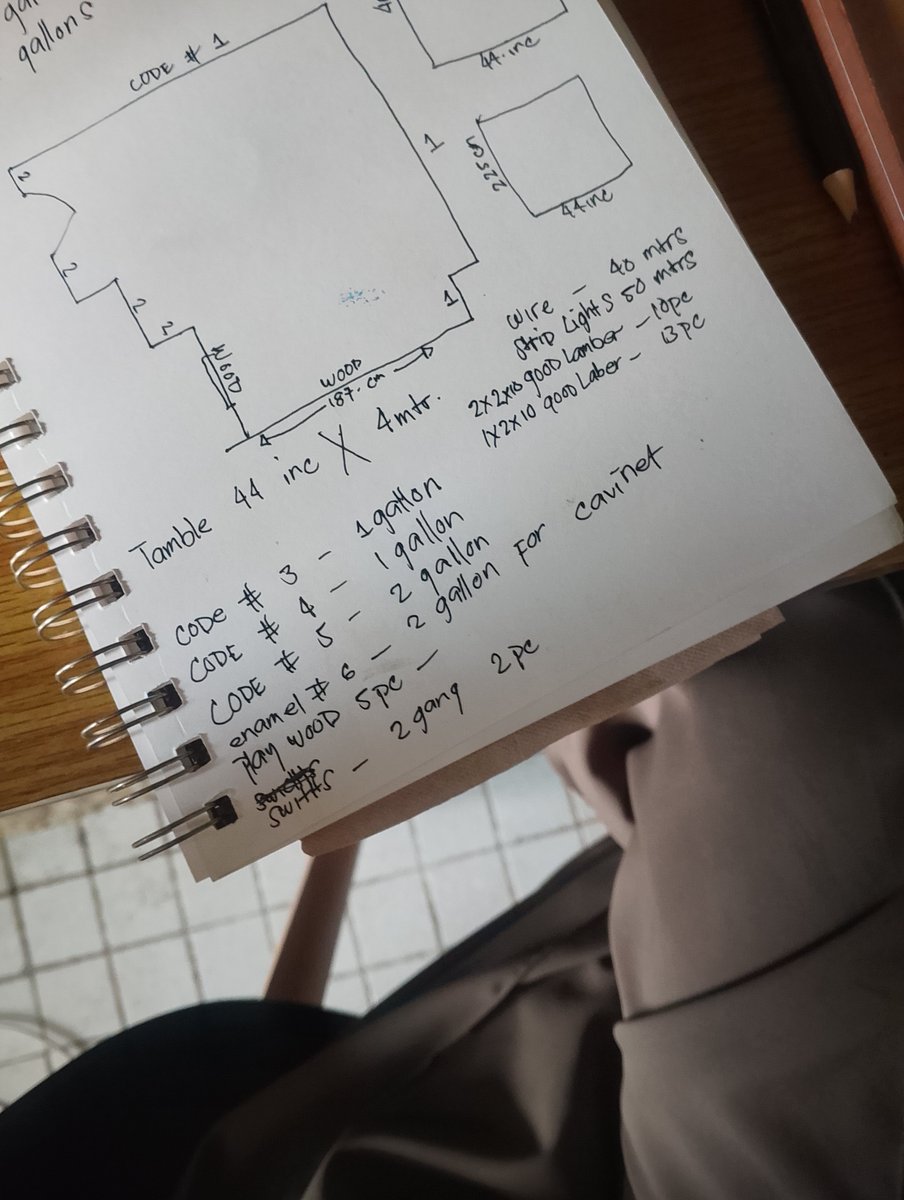 gallons
CODE # 1
44.inc
1
2
225
44inc
2
2
2
1
WOOD
WOOD
187.cm
wire - 40 mtrs
strip Lights 50 mtrs
2x2x10 good Lamber - 10pc
1x2x10 good Laber - 13pc
Tamble 44 inc X 4mtr.
CODE # 3 - 1gallon
CODE # 4 - 1 gallon
CODE # 5 - 2 gallon
enamel # 6 - 2 gallon For cavinet
Play wood 5pc -
swithis - 2gang 2pc